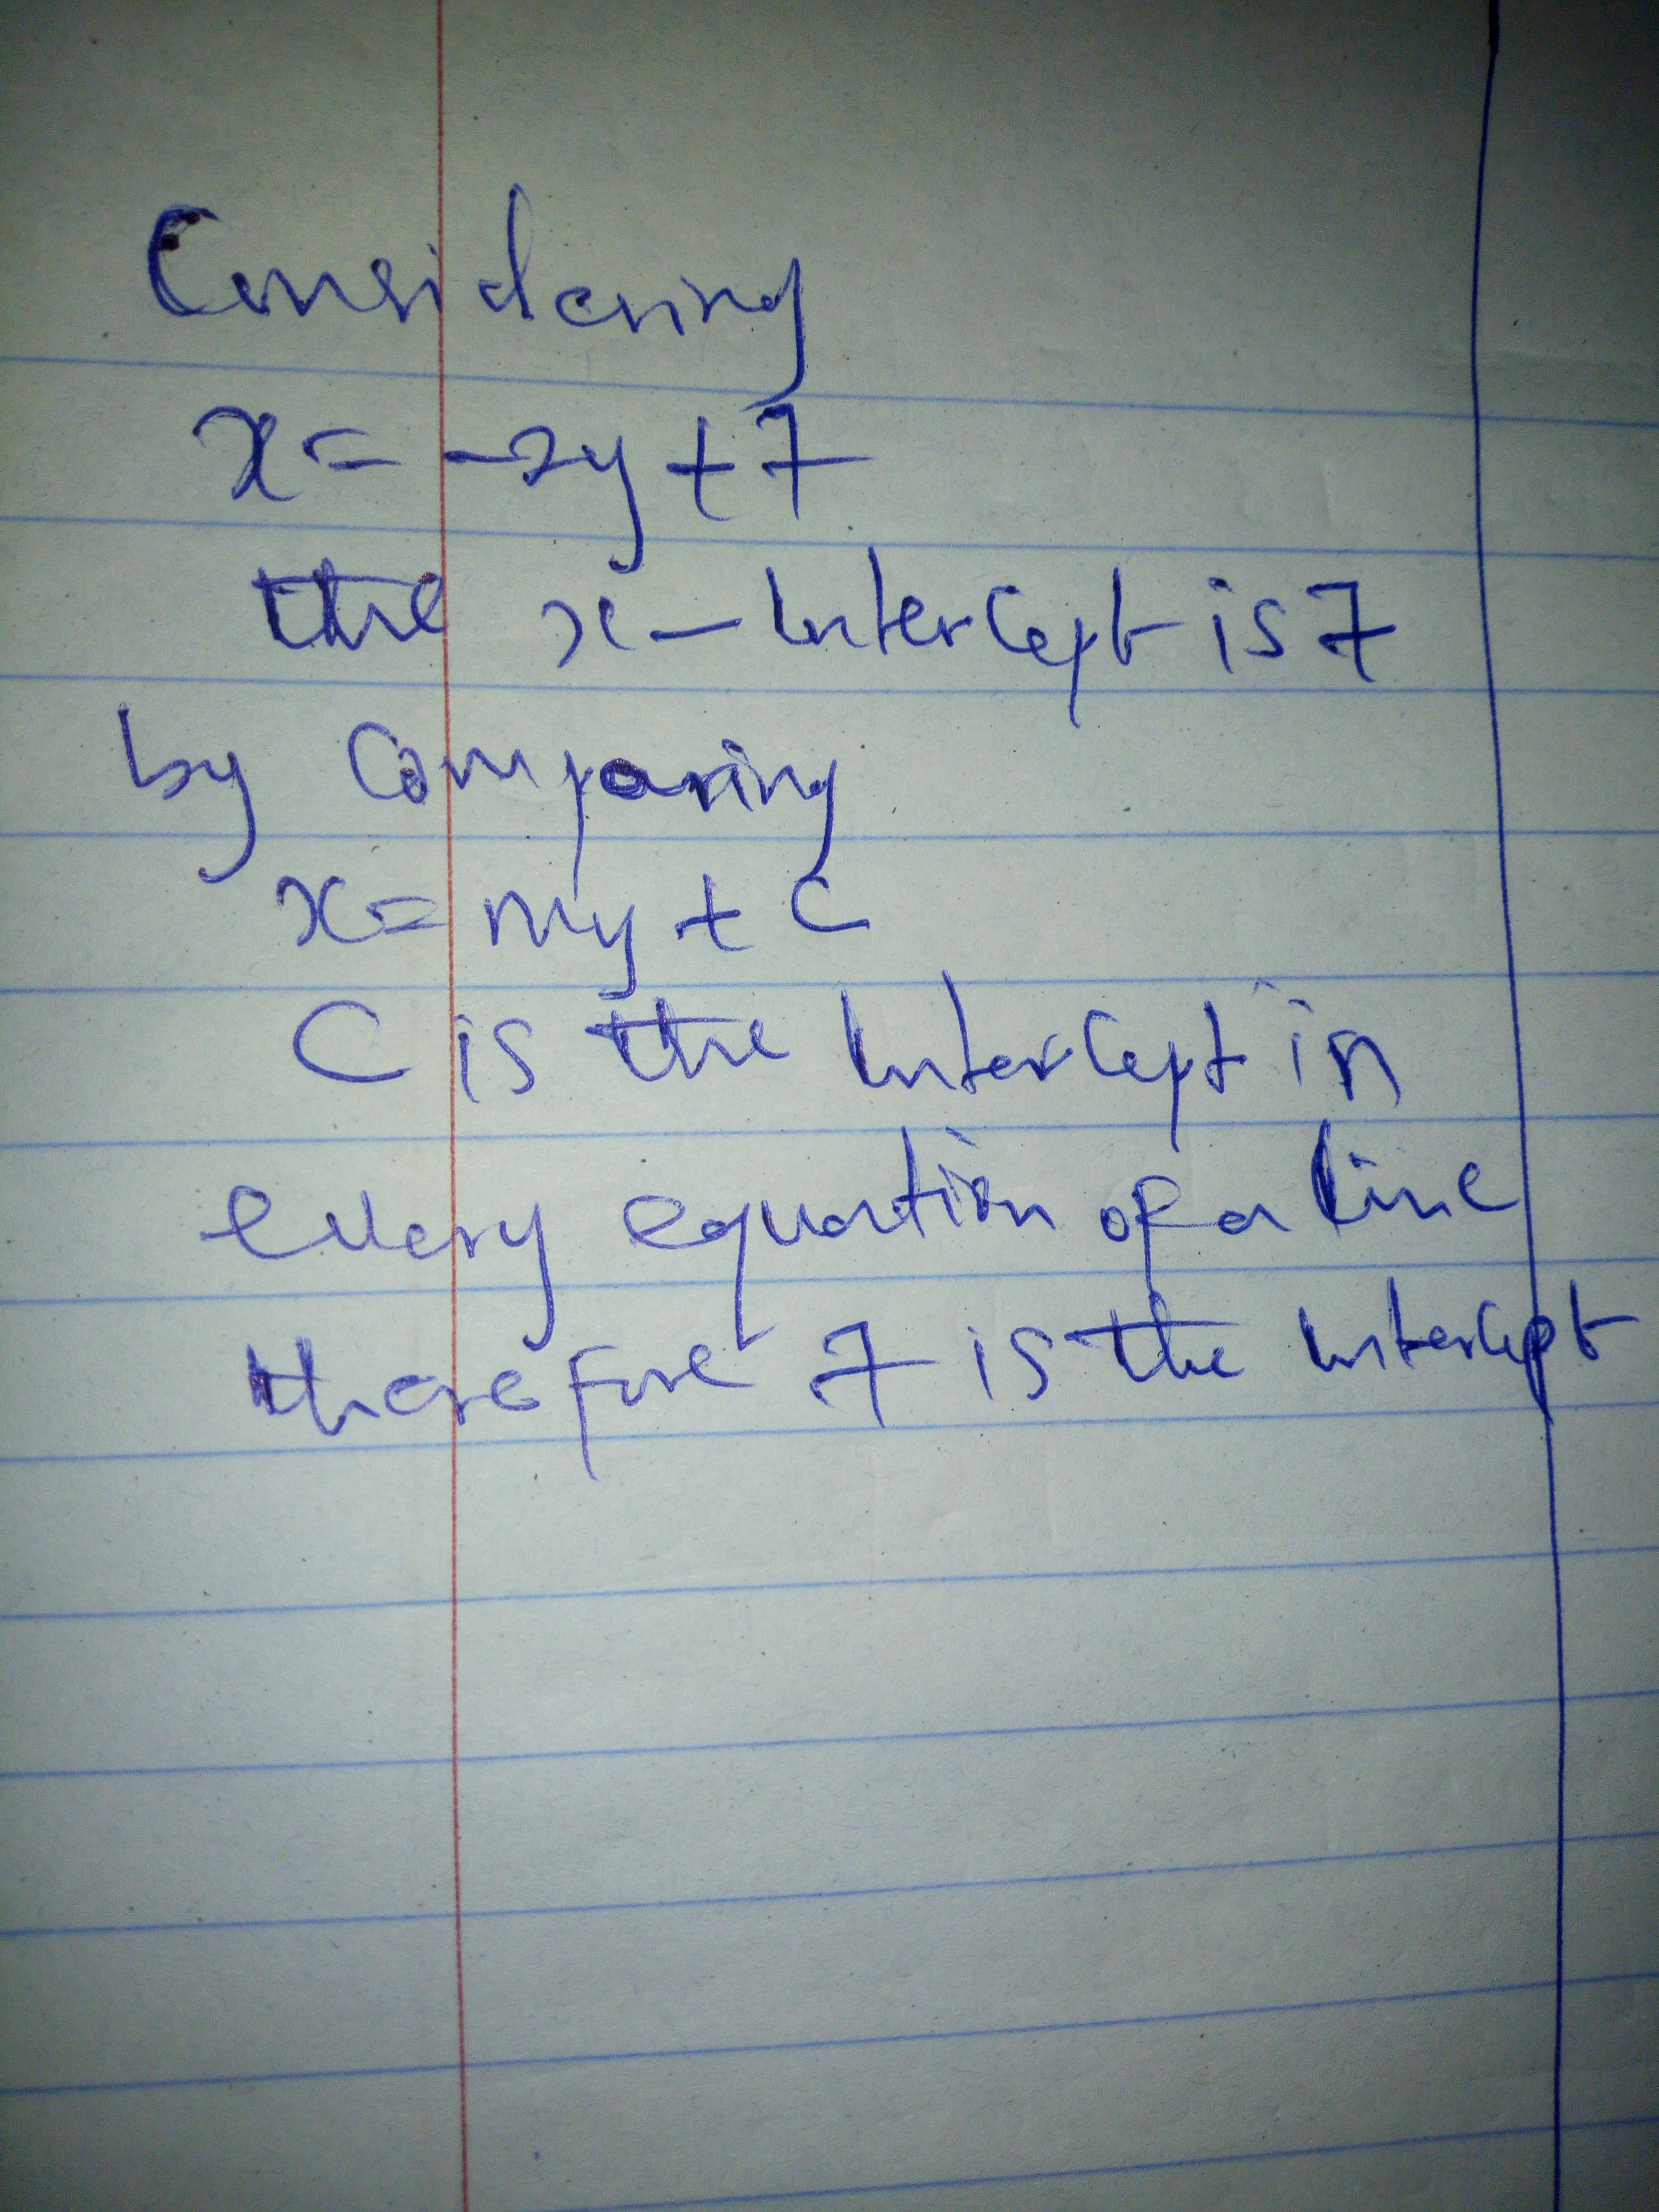 Considering
x = -2y + 7
the x - Intercept is 7
by Comparing
x = my + c
C is the Intercept in
every equation of a line
therefore 7 is the Intercept